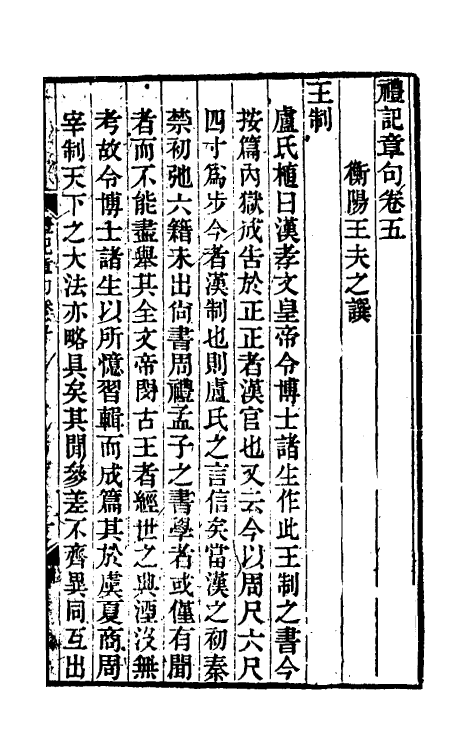 禮記章句卷五
衡陽王夫之譔
王制
盧氏植曰漢孝文皇帝令博士諸生作此王制之書今
按篇內獄成告於正正者漢官也又云今以周尺六尺
四寸爲步今者漢制也則盧氏之言信矣當漢之初秦
禁初弛六籍未出尙書周禮孟子之書學者或僅有聞
者而不能盡舉其全文帝閔古王者經世之典湮沒無
考故令博士諸生以所憶習輯而成篇其於虞夏商周
宰制天下之大法亦略具矣其閒參差不齊異同互出